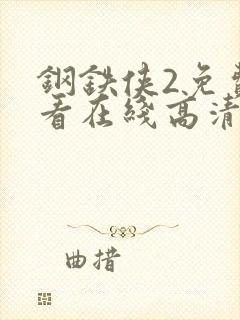 鋼鉄俠2免費
看在綫高清
曲措